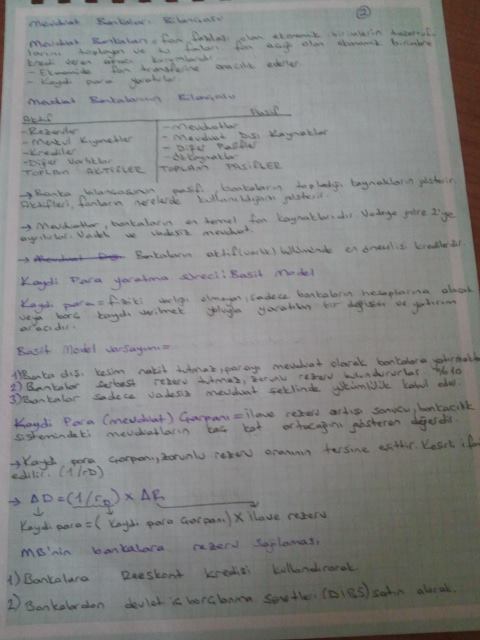 2
Mevduat Bankaları Bilançosu
Mevduat Bankaları = fon fazlası olan ekonomik birimlerin tasarruf-
larını toplayan ve bu fonları fon açığı olan ekonomik birimlere
kredi veren aracı kurumlardır.
- Ekonomide fon transferine aracılık ederler.
- Kaydi para yaratırlar.
Mevduat Bankalarının Bilançosu
Aktif Pasif
- Rezervler - Mevduatlar
- Menkul Kıymetler - Mevduat Dışı Kaynaklar
- Krediler - Diğer Pasifler
- Diğer Varlıklar - Özkaynaklar
TOPLAM AKTİFLER TOPLAM PASİFLER
→ Banka bilançosunun pasifi, bankaların topladığı kaynakların gösterir.
Aktifleri, fonların nerelerde kullanıldığını gösterir.
→ Mevduatlar, bankaların en temel fon kaynaklarıdır. Vadeye göre 2'ye
ayrılırlar. Vadeli ve vadesiz mevduat.
→ Bankaların aktif (varlık) bölümünde en önemlisi kredilerdir.
Kaydi Para yaratma süreci: Basit Model
Kaydi para = fiziki varlığı olmayan, sadece bankaların hesaplarına alacak
veya borç kaydı verilmek yoluyla yaratılan bir değişim ve yatırım
aracıdır.
Basit Model varsayımı =
1) Banka dışı kesim nakit tutmaz, parayı mevduat olarak bankalara yatırmakta
2) Bankalar serbest rezerv tutmaz, zorunlu rezerv bulundururlar. %10
3) Bankalar sadece vadesiz mevduat şeklinde yükümlülük kabul eder.
Kaydi Para (mevduat) Çarpanı = ilave rezerv artışı sonucu, bankacılık
sistemindeki mevduatların kaç kat artacağını gösteren değerdir.
→ Kaydi para çarpanı, zorunlu rezerv oranının tersine eşittir. Kesirli ifade
edilir. (1/rD)
→ ΔD = (1/rD) x ΔR
Kaydi para = (Kaydi para Çarpanı) x İlave rezerv
MB'nin bankalara rezerv sağlaması
1) Bankalara Reeskont kredisi kullandırarak.
2) Bankalardan devlet iç borçlanma senetleri (DİBS) satın alarak.